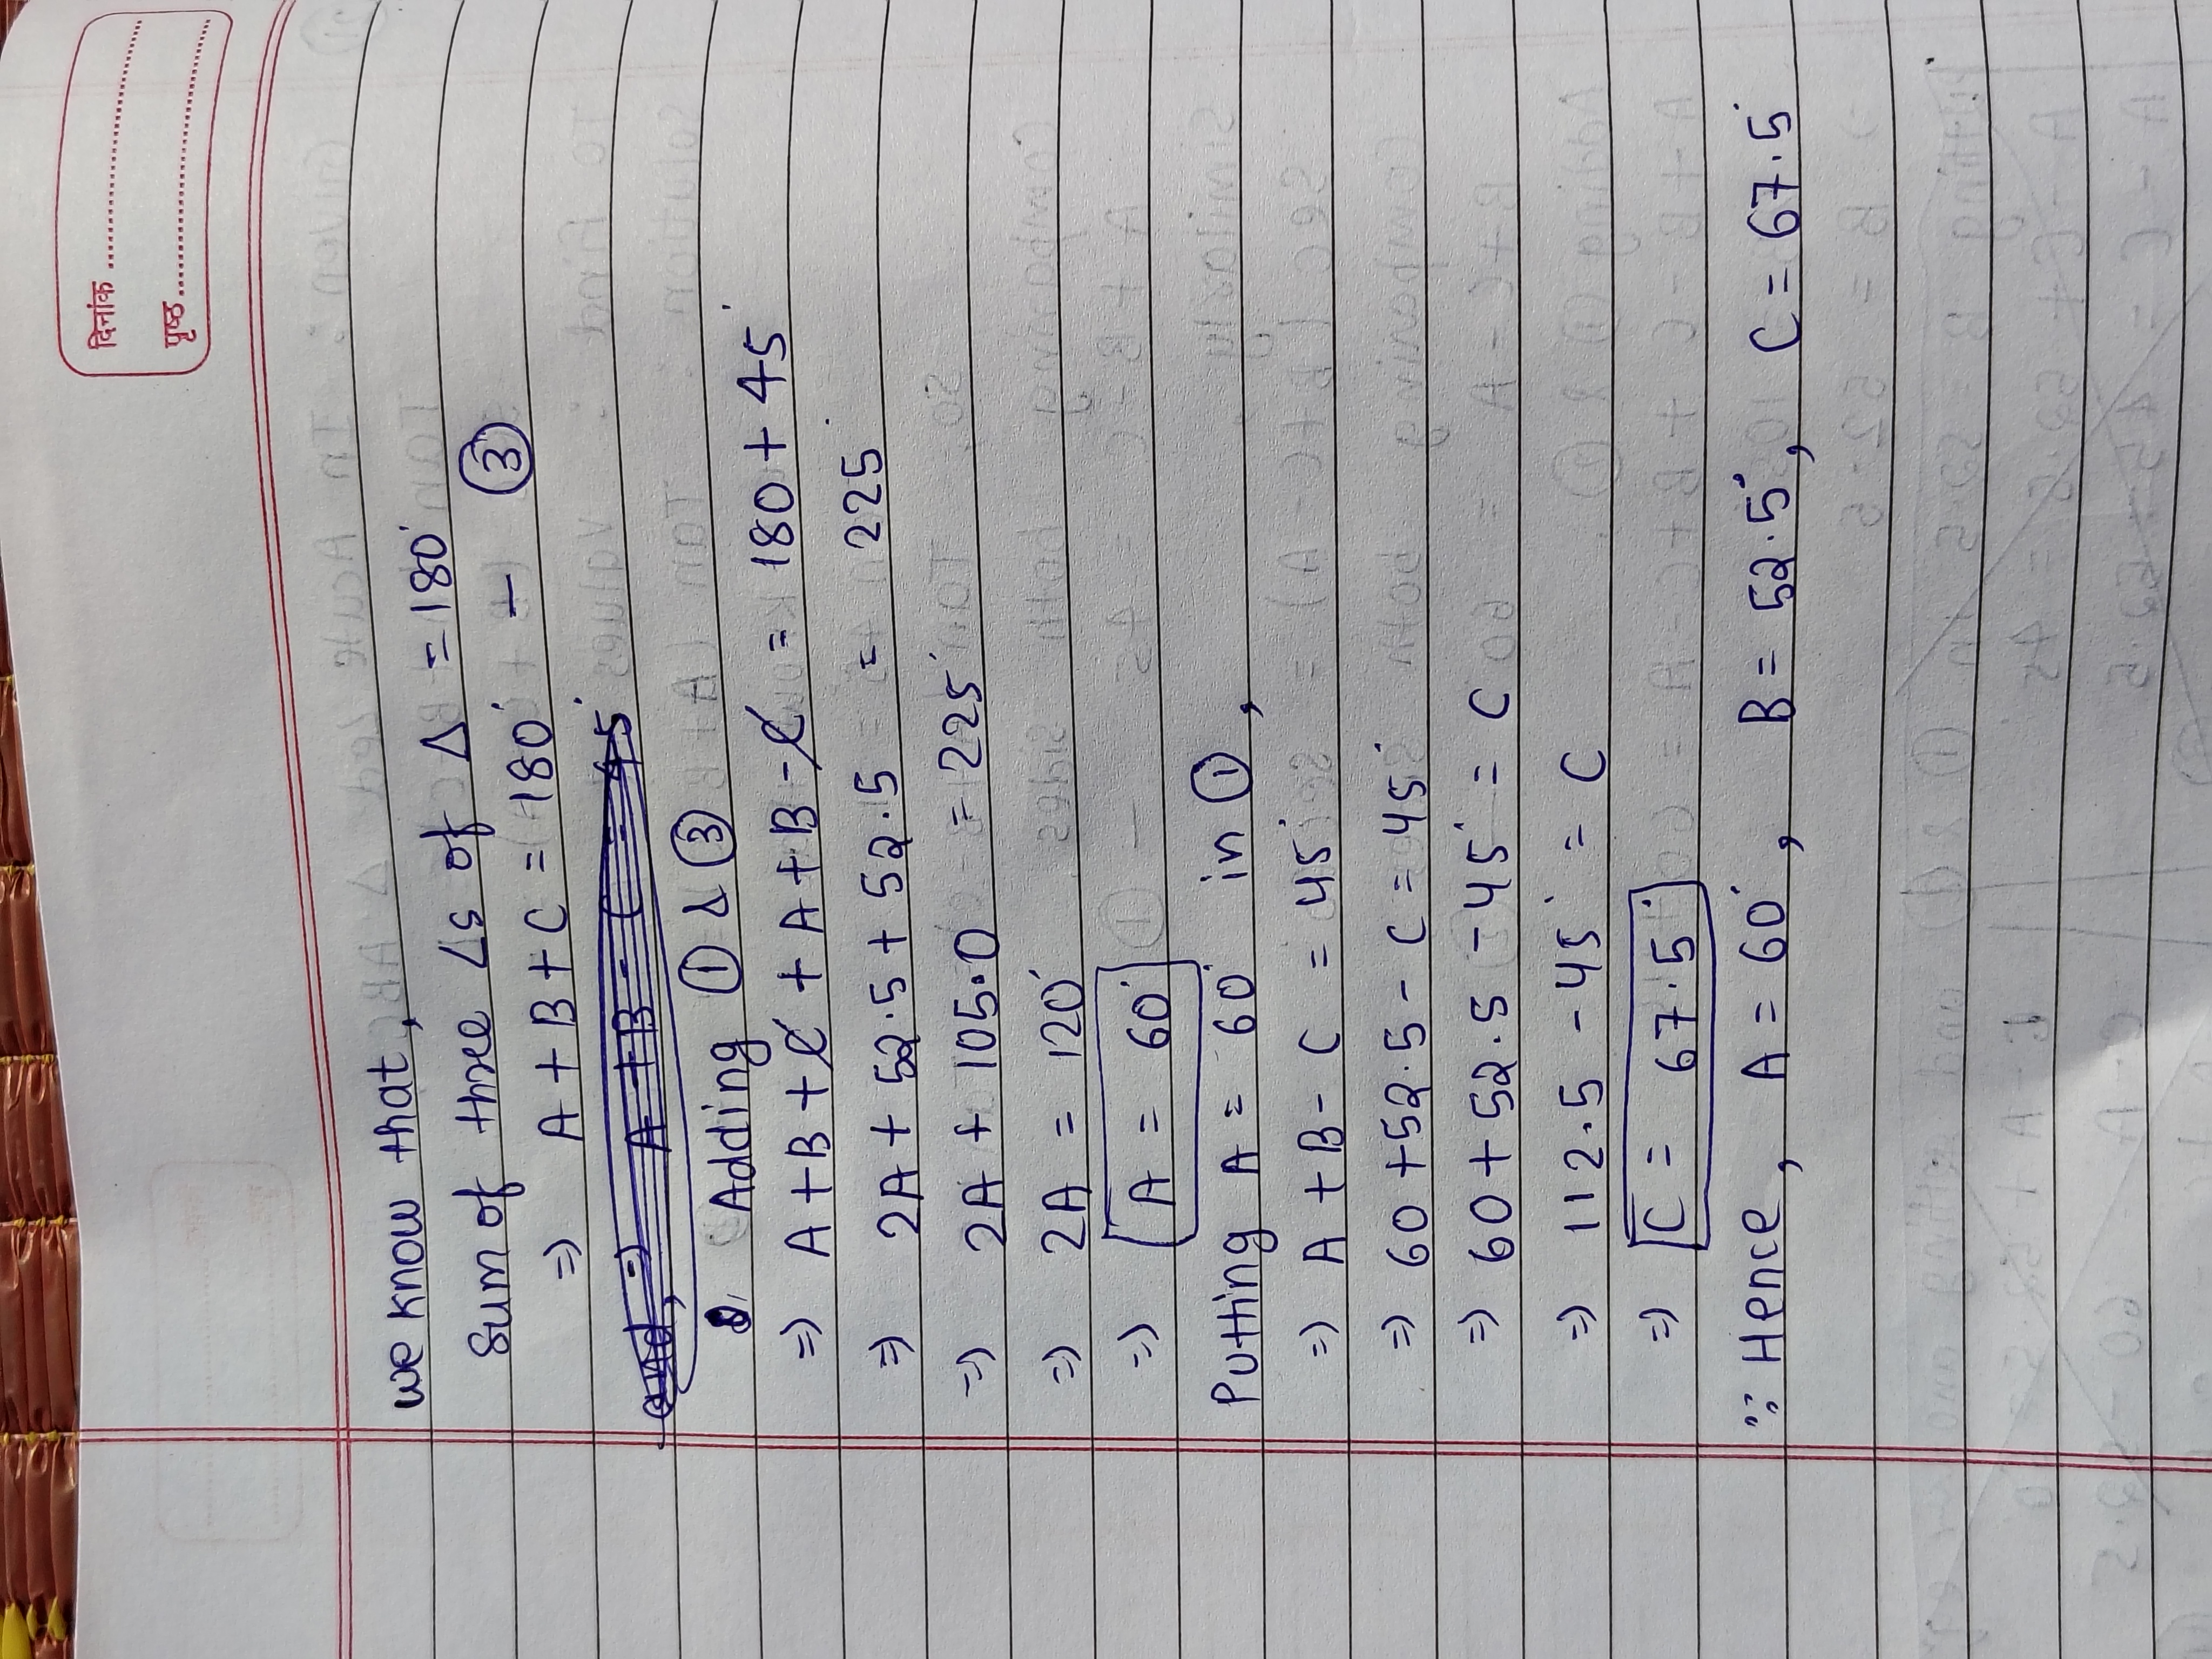 दिनांक ............................
पृष्ठ ............................
we know that,
Sum of three ∠s of Δ = 180°
⇒ A + B + C = 180° — ③
Adding ① & ③
⇒ A + B + C + A + B - C = 180 + 45°
⇒ 2A + 52.5 + 52.5 = 225°
⇒ 2A + 105.0 = 225°
⇒ 2A = 120°
⇒ A = 60°
Putting A = 60° in ①,
⇒ A + B - C = 45°
⇒ 60 + 52.5 - C = 45°
⇒ 60 + 52.5 - 45° = C
⇒ 112.5 - 45° = C
⇒ C = 67.5°
∵ Hence, A = 60°, B = 52.5°, C = 67.5°